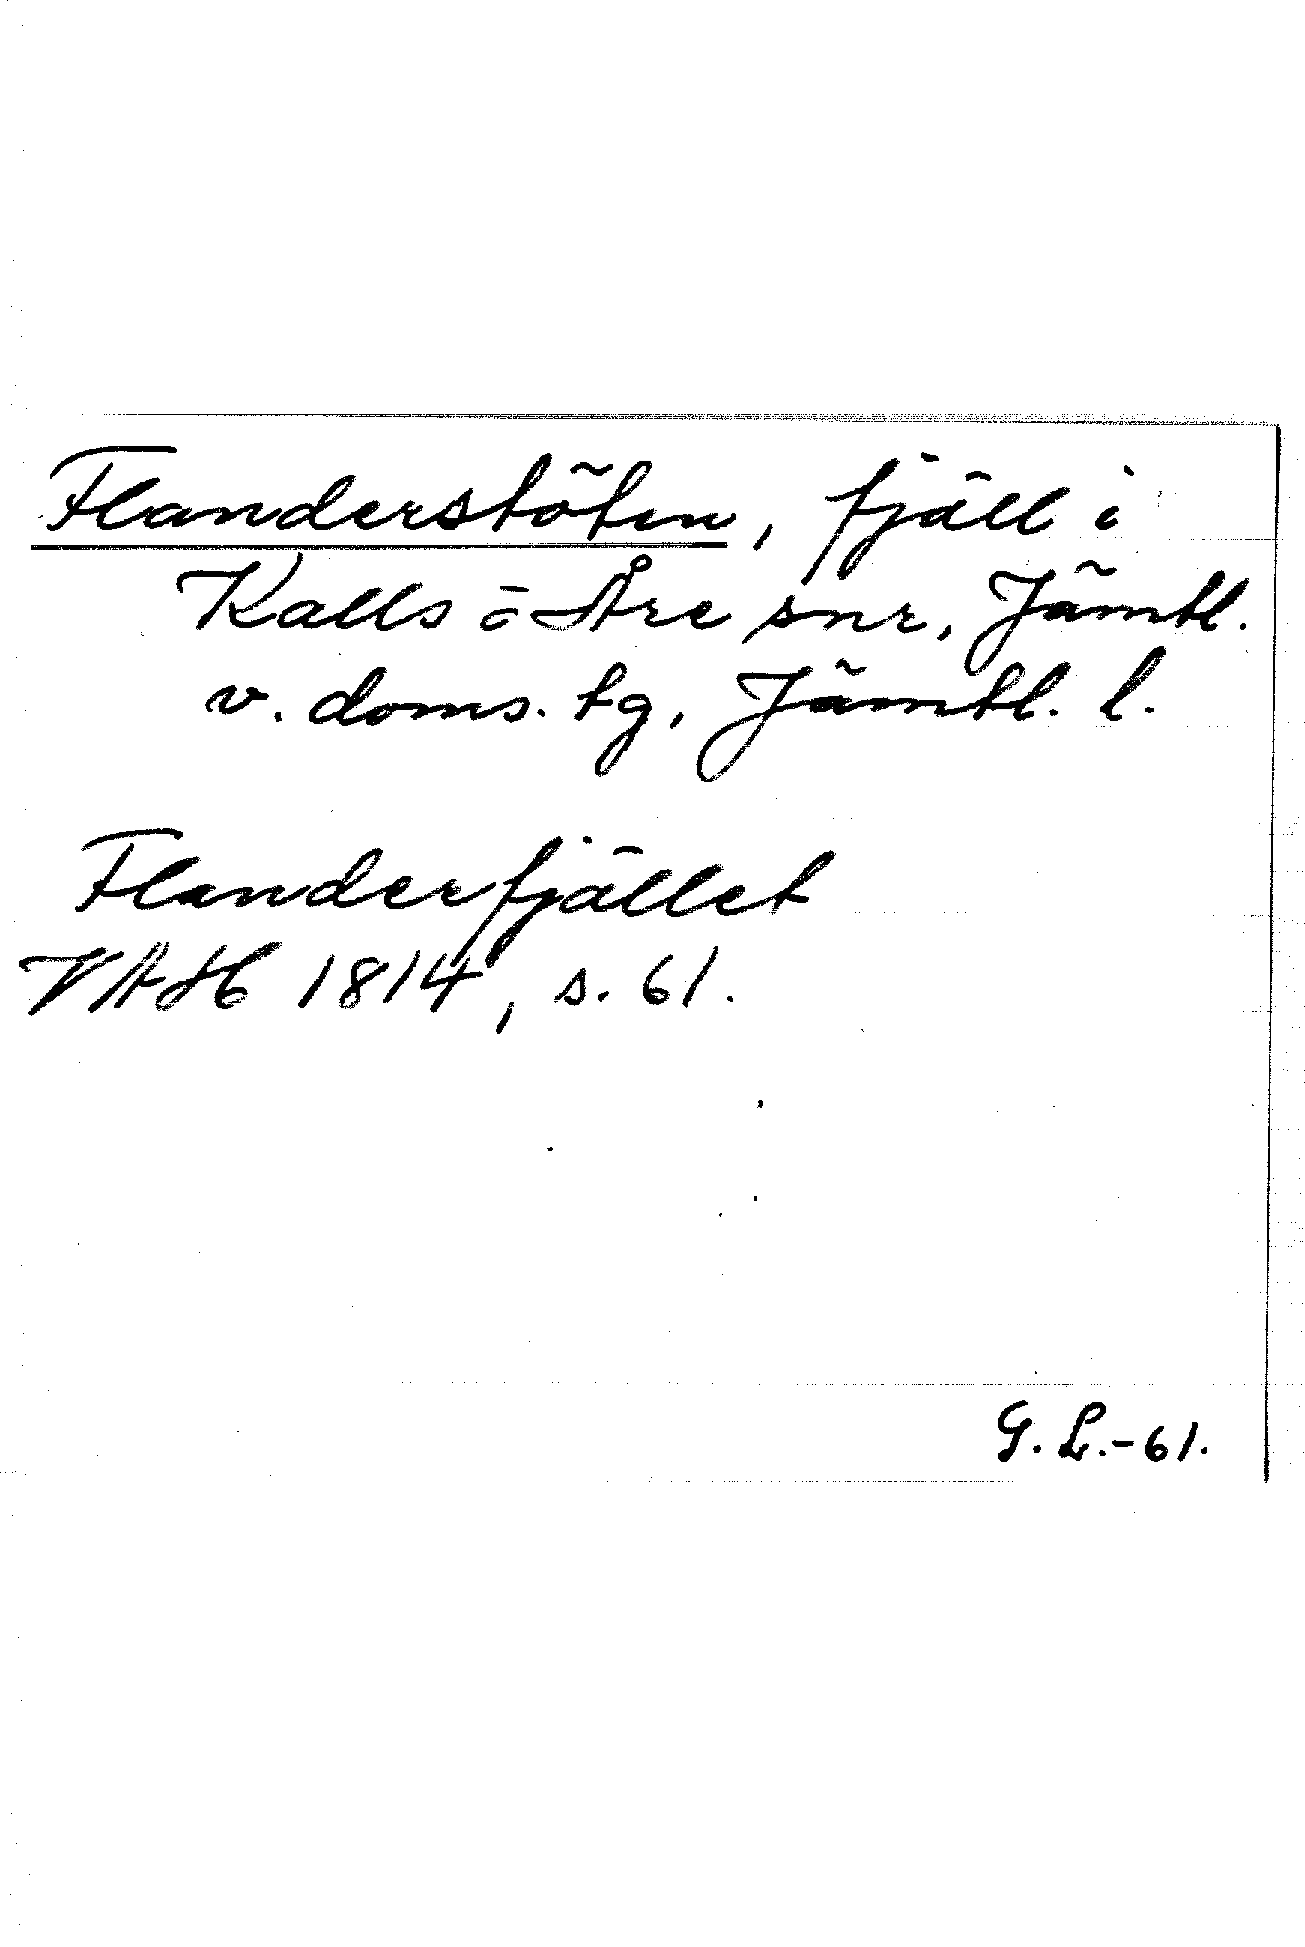 Flanderstöten, fjäll i
Kalls o Åre snr, Jämtl.
v. doms. tg, Jämtl. l.
Flanderfjället
VAH 1814, s. 61.
G. L.-61.